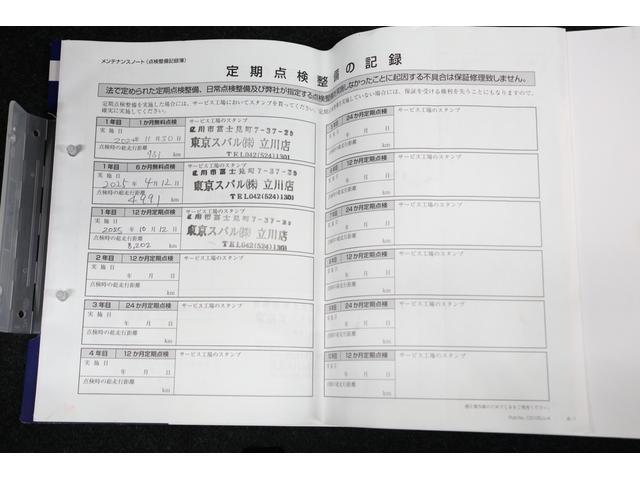 メンテナンスノート（点検整備記録簿）
定期点検整備の記録
法で定められた定期点検整備、日常点検整備及び弊社が指定する点検整備
しなかったことに起因する不具合は保証修理致しません。
定期点検を実施した場合には、サービス工場においてスタンプを貰ってください。定期
実施していない場合には、保証を受ける権利を失うこともありますので、
確実に実施してください。
1年目 1か月無料点検 サービス工場のスタンプ
実施日
2024年11月30日
点検時の総走行距離
951 km
立川市富士見町7-37-29
東京スバル㈱ 立川店
TEL042(524)1301
1年目 6か月無料点検 サービス工場のスタンプ
実施日
2025年4月12日
点検時の総走行距離
4,991 km
立川市富士見町7-37-29
東京スバル㈱ 立川店
TEL042(524)1301
1年目 12か月定期点検 サービス工場のスタンプ
実施日
2025年10月12日
点検時の総走行距離
8,202 km
立川市富士見町7-37-29
東京スバル㈱ 立川店
TEL042(524)1301
2年目 24か月定期点検 サービス工場のスタンプ
実施日
年 月 日
点検時の総走行距離
km
3年目 24か月定期点検 サービス工場のスタンプ
実施日
年 月 日
点検時の総走行距離
km
4年目 12か月定期点検 サービス工場のスタンプ
実施日
年 月 日
点検時の総走行距離
km
24か月定期点検 サービス工場のスタンプ
年 月 日
km
12か月定期点検 サービス工場のスタンプ
年 月 日
km
24か月定期点検 サービス工場のスタンプ
年 月 日
km
12か月定期点検 サービス工場のスタンプ
年 月 日
km
24か月定期点検 サービス工場のスタンプ
年 月 日
km
12か月定期点検 サービス工場のスタンプ
年 月 日
km